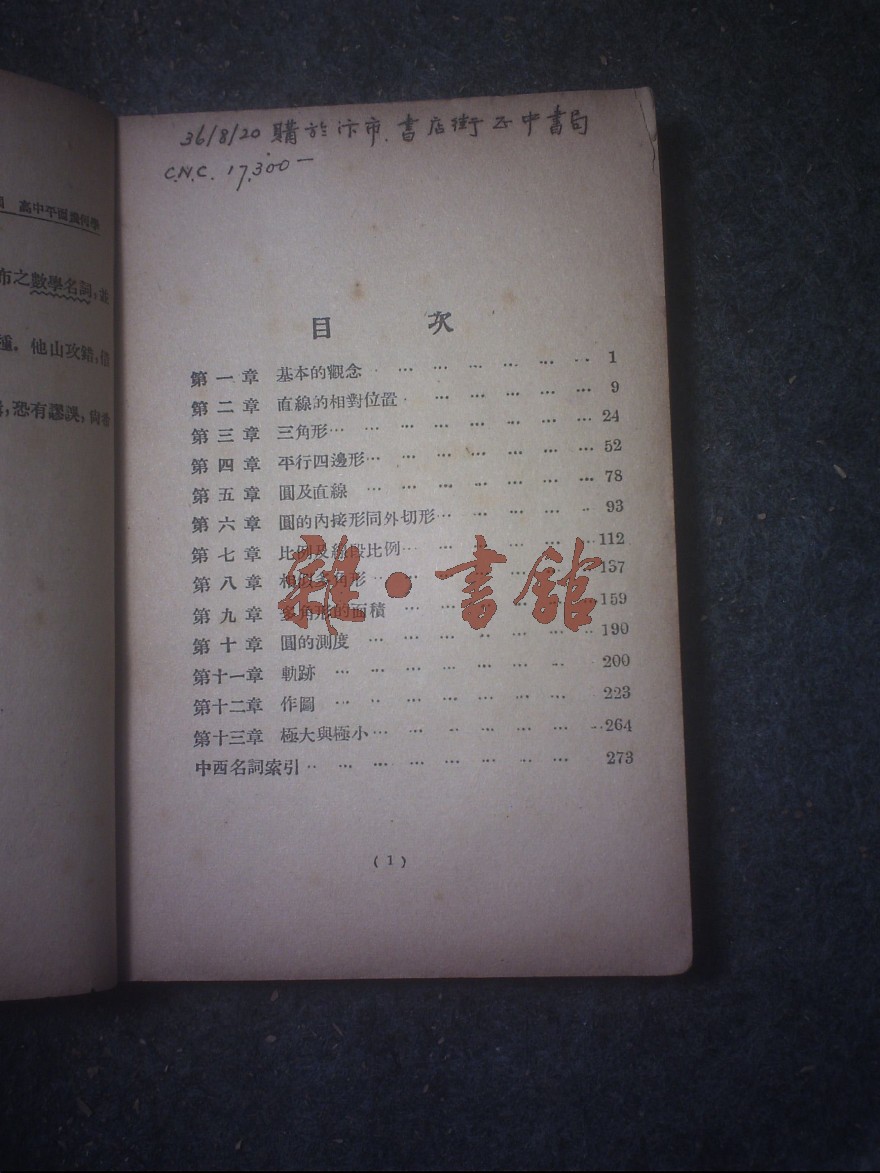 高中平面幾何學
布之數學名詞,並
種,他山攻錯,借
恐有謬誤,尙希
36/8/20 購於汴市.書店街正中書局
C.N.C. 17,300—
目 次
第一章 基本的觀念 ··· ··· ··· ··· ··· ··· 1
第二章 直線的相對位置 ··· ··· ··· ··· ··· ··· 9
第三章 三角形 ··· ··· ··· ··· ··· ··· ··· 24
第四章 平行四邊形 ··· ··· ··· ··· ··· ··· 52
第五章 圓及直線 ··· ··· ··· ··· ··· ··· 78
第六章 圓的內接形同外切形 ··· ··· ··· ··· ··· 93
第七章 比例及線段比例 ··· ··· ··· ··· ··· 112
第八章 相似多角形 ··· ··· ··· ··· ··· 137
第九章 多角形的面積 ··· ··· ··· ··· ··· 159
第十章 圓的測度 ··· ··· ··· ··· ··· ··· 190
第十一章 軌跡 ··· ··· ··· ··· ··· ··· ··· 200
第十二章 作圖 ··· ··· ··· ··· ··· ··· ··· 223
第十三章 極大與極小 ··· ··· ··· ··· ··· ··· 264
中西名詞索引 ··· ··· ··· ··· ··· ··· ··· 273
(1)
雜·書館